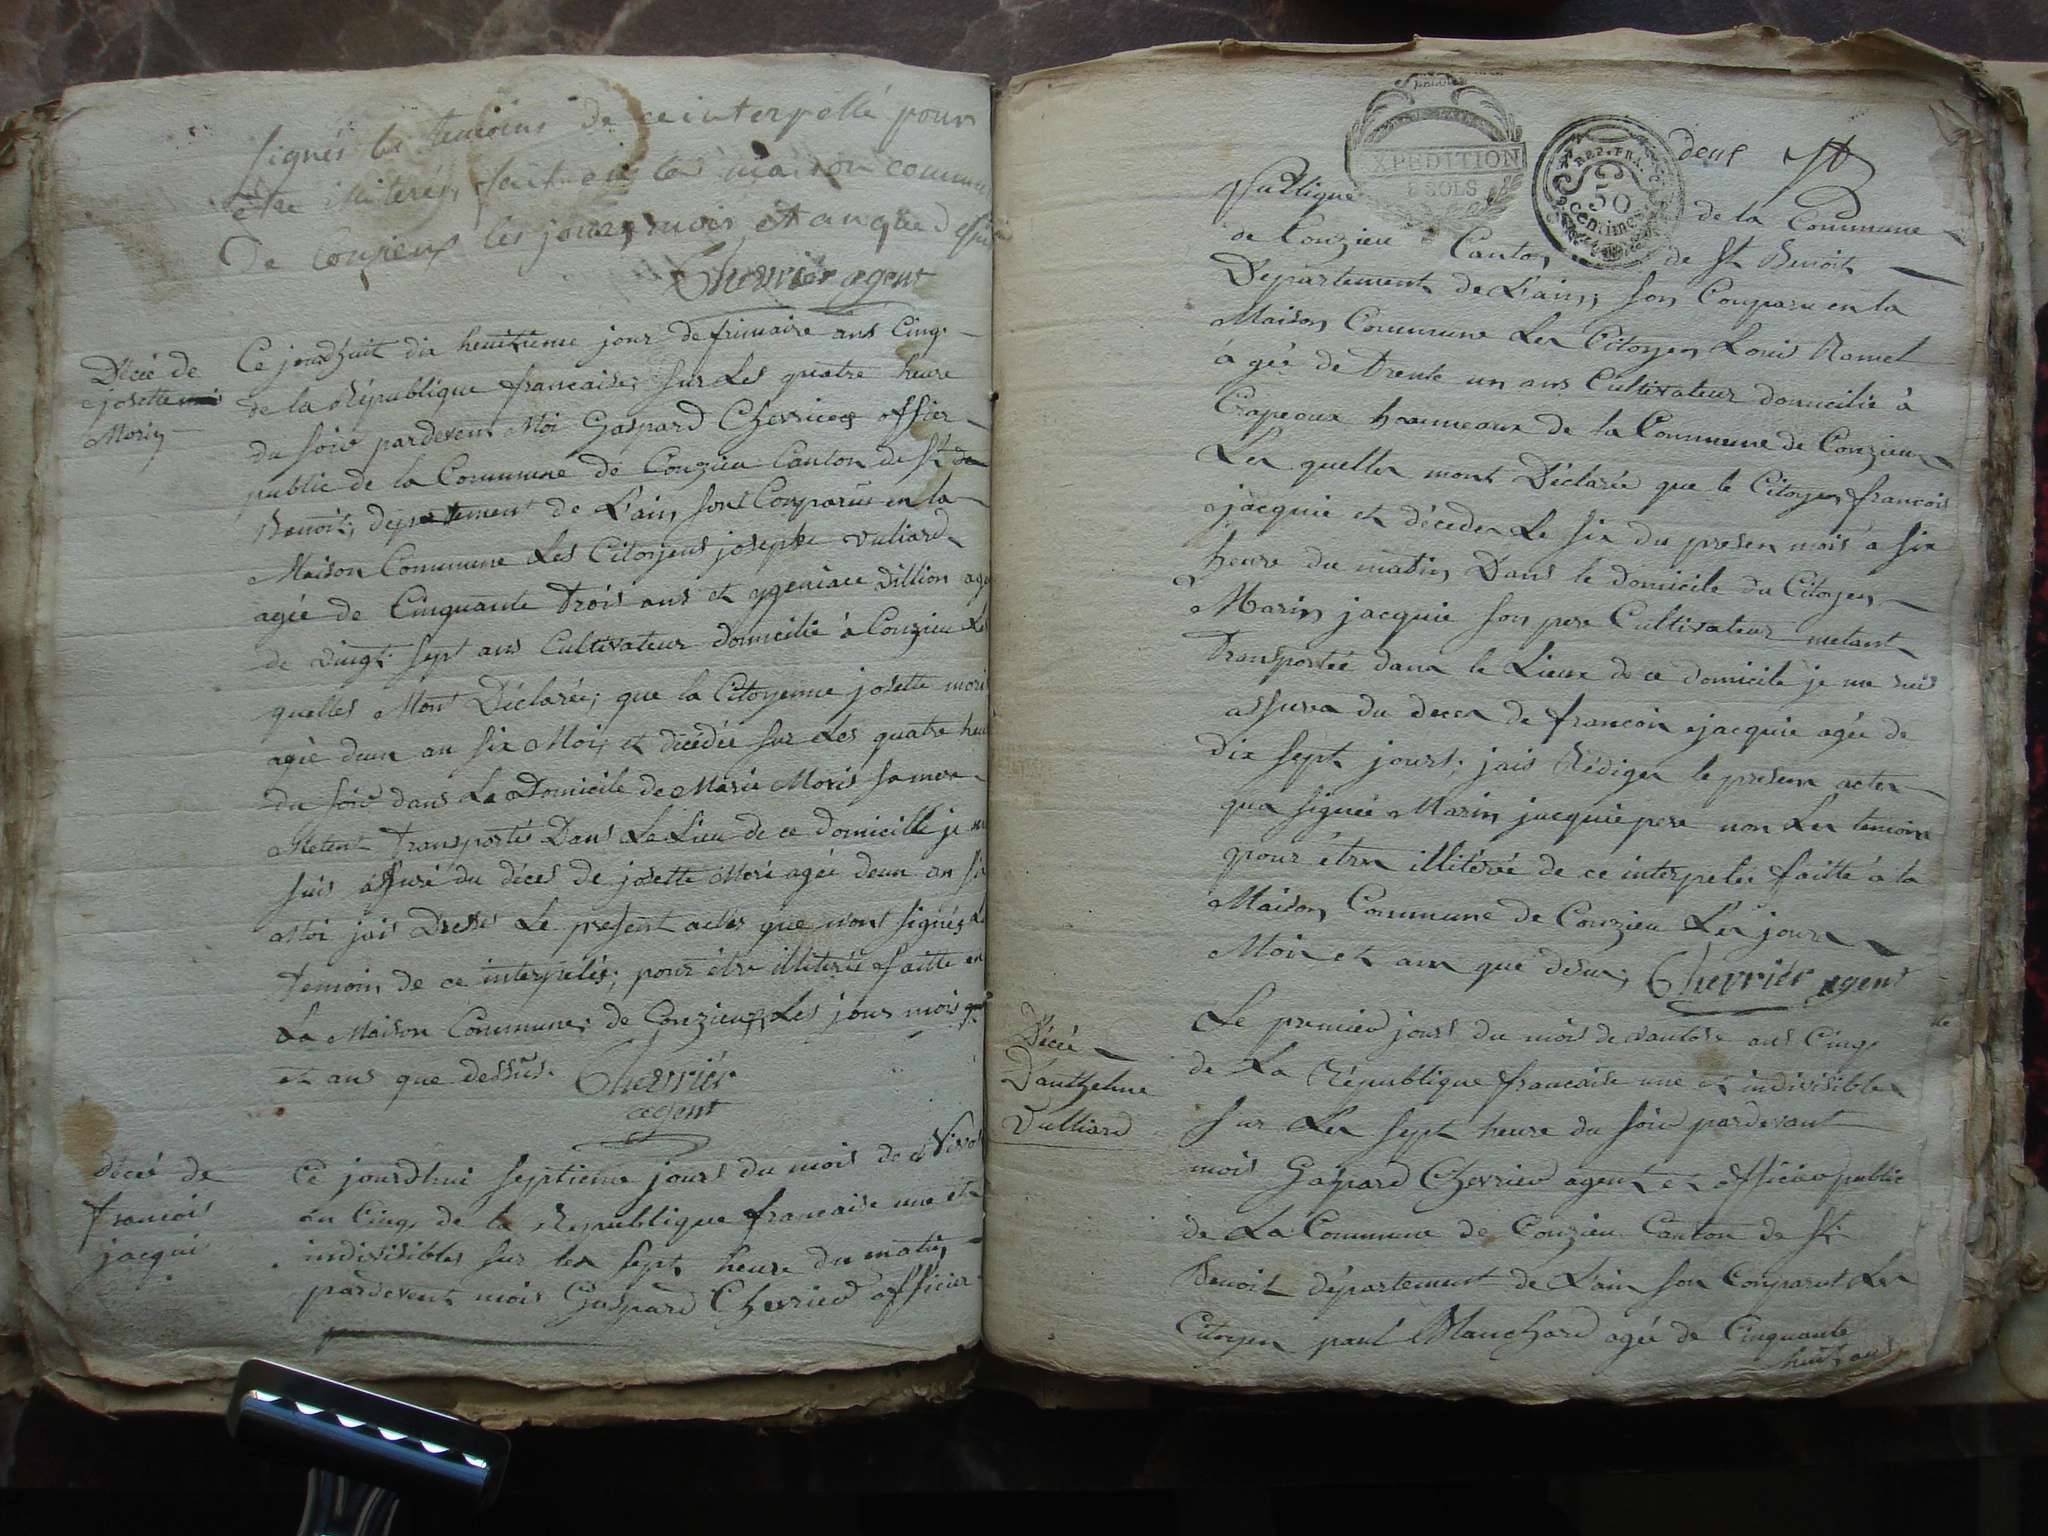 signés les temoins de ce interpellé pour
être illiterés, fait en la maison commune
De Conzieux les jours, mois, et an que dessus
Chevrier agent
Décé de
josette
Morin
Ce jourdhuit dix heuitieme jour de frimaire ans Cinq
de la République francaise; sur Les quatre heure
du soir pardevent Moi Gaspard Chevrier offier
public de la Commune de Conzieu Canton de St
Benoit, departement de L'ain, sont Comparus en la
Maison Commune Les Citoyens josephe vuliard
agée de Cinquante trois ans et ygeniace Dillion agé
de vingt sept ans Cultivateur domicilié à Conzieu Les
quelles Mont Déclarée; que la Citoyenne josette mori
agée deun an six Moi; et décédée sur Les quatre heu
du soir dans Le Domicile de Marie Moris sa mere
Metent transportée Dans Le Lieu de ce domicille je me
suis assuré du déces de josette Mori agée deun an six
Moi jais Dressé Le present actes que n'ont signés Le
temoin, de ce interpelés; pour être illiterée faitte en
La Maison Commune; de Conzieu Les jour mois
et ans que dessus. Chevrier
agent
décé de
francois
jacqui
Ce jourdhui septieme jours du mois de Nivos
an Cinq, de la Republique francaise une et
indivisibles sur les sept heure du matin
pardevent mois Gaspard Chevrier officier
EXPEDITION
8 SOLS
REP. FRA.
50
centimes
deux
Publique de la Commune
de Conzieu Canton de St Benoit
Departement de L'ain; son Comparu en la
Maison Commune Les Citoyen Louis Ramel
agée de trente un ans Cultivateur domicilié à
Crapeoux hammeaux de la Commune de Conzieux
Les quelles mont Déclarée que le Citoyen francois
jacquie et déceder Le six du presen mois a six
heure du matin Dans le domicile du Citoyen
Marin jacquie son pere Cultivateur metant
Transportée dans le Lieux de ce domicile je me suis
assurer du deces de francois jacquie agée de
dix sept jours; jais Rédiger le presen actes
qua signée Marin jacquie pere non Les temoins
pour être illitérée de ce interpelée faitte à la
Maison Commune de Conzieu Les jours
Mois et ans que desus; Chevrier agent
Décée
D'anthelme
Vulliard
Le premier jours du mois de vantose ans Cinq
de La République francaise une et indivisibles
sur Les sept heure du soir pardevant
mois Gaspard Chevrier agent et officier public
de La Commune de Conzieu Canton de St
Benoit département de L'ain son Comparut Les
Citoyen paul Blanchard agée de Cinquante
huit ans